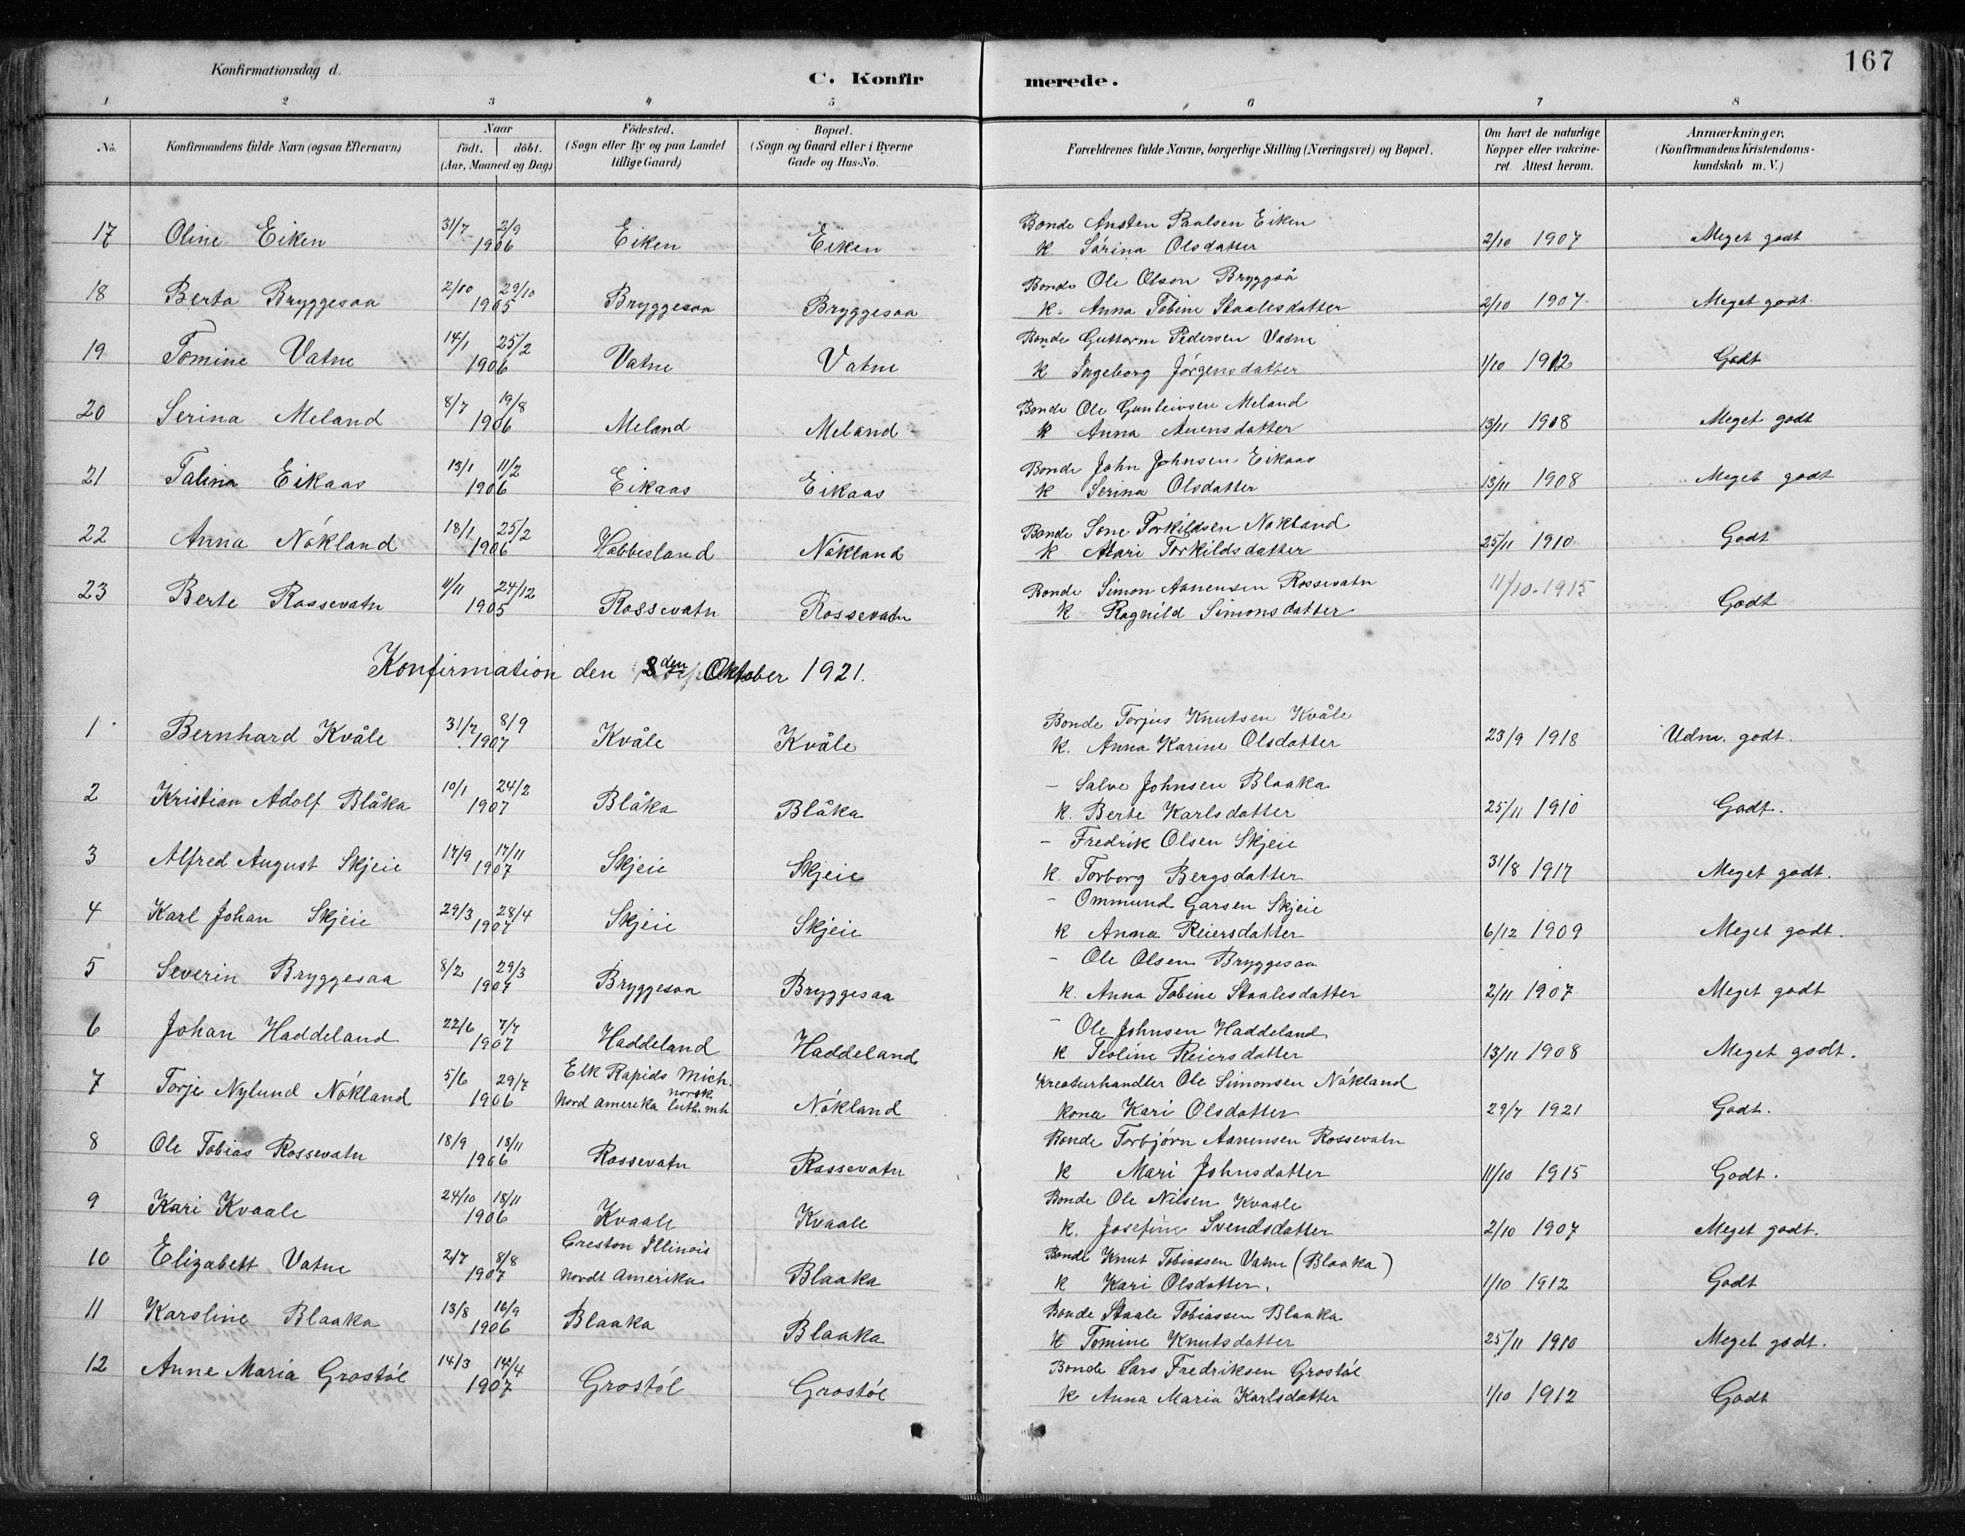 167
Konfirmationsdag d.
C. Konfir merede.
1 2 3 4 5 6 7 8
No. Konfirmandens fulde Navn (ogsaa Efternavn) Naar født. døbt. (Aar, Maaned og Dag) Fødested. (Sogn eller By og paa Landet tillige Gaard) Bopæl. (Sogn og Gaard eller i Byerne Gade og Hus-No. Forældrenes fulde Navne, borgerlige Stilling (Næringsvei) og Bopæl. Om havt de naturlige Kopper eller vakcineret. Attest herom. Anmærkninger. (Konfirmandens Kristendomskundskab m. V.)
17 Oline Eiken 31/7 2/9 1906 Eiken Eiken Bonde Ansten Paalsen Eiken
K. Sørina Olsdatter 2/10 1907 Meget godt
18 Berta Bryggesaa 2/10 29/10 1905 Bryggesaa Bryggesaa Bonde Ole Olson Bryggså
K. Anna Tobine Staalesdatter 2/10 1907 Meget godt
19 Tomine Vatne 14/1 25/2 1906 Vatne Vatne Bonde Guttorm Pedersen Vatne
K Ingeborg Jørgensdatter 1/10 1912 Godt
20 Serina Meland 8/7 19/8 1906 Meland Meland Bonde Ole Gunleivsen Meland
K Anna Auensdatter 13/11 1908 Meget godt
21 Talina Eikaas 13/1 11/2 1906 Eikaas Eikaas Bonde John Johnsen Eikaas
K Serina Olsdatter 13/11 1908 Meget godt
22 Anna Nökland 18/1 25/2 1906 Høbbesland Nökland Bonde Sone Torkildsen Nökland
K Mari Torkildsdatter 25/11 1910 Godt
23 Berte Rossevatn 11/11 24/12 1905 Rossevatn Rossevatn Bonde Simon Aanensen Rossevatn
K Ragnild Simonsdatter 11/10-1915 Godt
Konfirmation den 2den Oktober 1921.
1 Bernhard Kvåle 31/7 8/9 1907 Kvåle Kvåle Bonde Torjus Knutsen Kvåle
K. Anna Karine Olsdatter 23/9 1918 Udm. godt.
2 Kristian Adolf Blåka 10/1 24/2 1907 Blåka Blåka - Salve Johnsen Blaaka
K. Berte Karlsdatter 25/11 1910 Godt.
3 Alfred August Skjeie 17/9 17/11 1907 Skjeie Skjeie - Fredrik Olsen Skjeie
K. Torborg Bergsdatter 31/8 1917 Meget godt.
4 Karl Johan Skjeie 29/3 28/4 1907 Skjeie Skjeie - Ommund Garsen Skjeie
K Anna Reiersdatter 6/12 1909 Meget godt.
5 Severin Bryggesaa 8/2 29/3 1907 Bryggesaa Bryggesaa - Ole Olsen Bryggesaa
K. Anna Tobine Staalesdatter 2/11 1907 Meget godt
6 Johan Haddeland 22/6 7/7 1907 Haddeland Haddeland - Ole Johnsen Haddeland
K Teoline Reiersdatter 13/11 1908 Meget godt.
7 Torje Nylund Nökland 5/6 29/7 1906 Elk Rapids Mich. Nord Amerika norsk luth. mh Nökland Kreaturhandler Ole Simonsen Nökland
kona Kari Olsdatter 29/7 1921 Godt.
8 Ole Tobias Rossevatn 18/9 18/11 1906 Rossevatn Rossevatn Bonde Torbjørn Aanensen Rossevatn
K Mari Johnsdatter 11/10 1915 Godt.
9 Kari Kvaale 24/10 18/11 1906 Kvaale Kvaale Bonde Ole Nilsen Kvaale
K. Josefine Svendsdatter 2/10 1907 Meget godt.
10 Elizabett Vatne 2/7 8/8 1907 Creston Illinois Nordt Amerika Blaaka Bonde Knut Tobiassen Vatne (Blaaka)
K Kari Olsdatter. 1/10 1912 Godt
11 Karoline Blaaka 13/8 16/9 1906 Blaaka Blaaka Bonde Staale Tobiassen Blaaka
K Tomine Knutsdatter 25/11 1910 Meget godt.
12 Anne Maria Grostöl 14/3 14/4 1907 Grostöl Grostöl Bonde Lars Fredriksen Grostöl
K Anna Maria Karlsdatter 1/10 1912 Godt